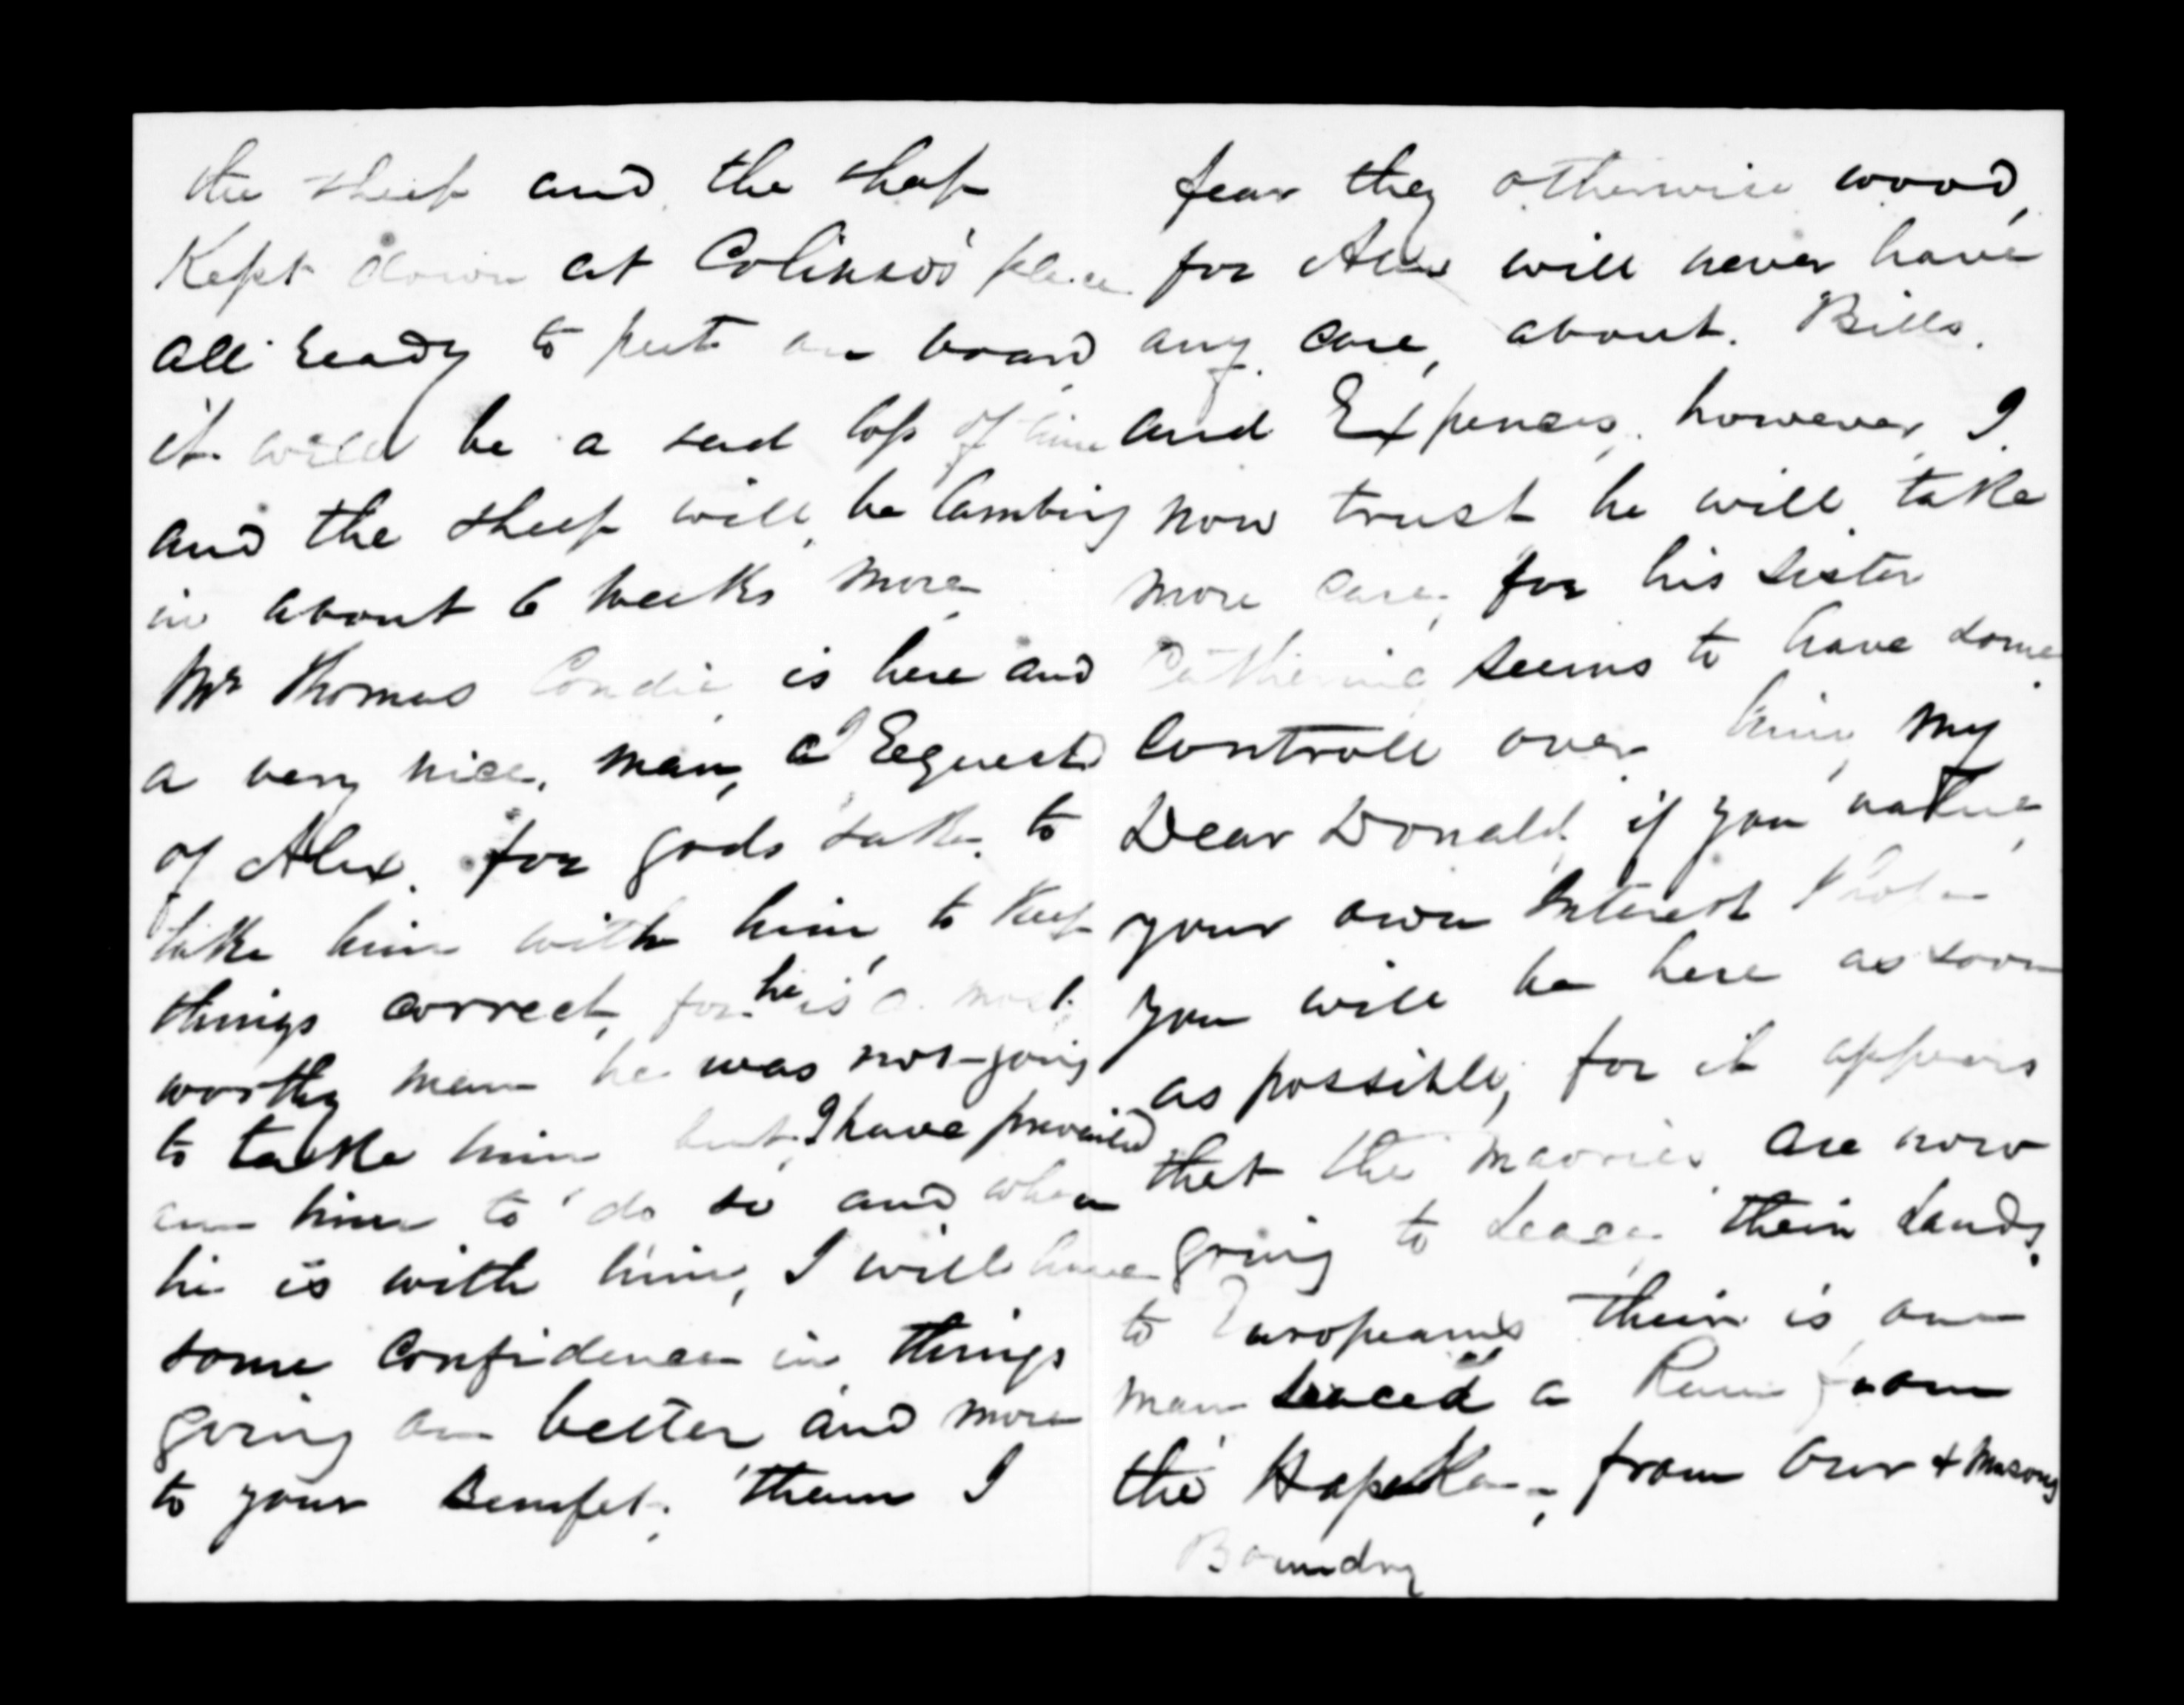 the sheep and the shop
Kept down at Colinso's place
all ready to put on board
it would be a sad loss of time
and the sheep will be lambing
in about 6 weeks more
Mr Thomas Condie is here and
a very nice man, a Request
of Alex. for gods sake to
take him with him, to keep
things correct, for he is a most
worthy man he was not going
to take him but I have prevailed
on him to do so and when
he is with him, I will have
some Confidence in things
going on better and more
to your Benefet. then I
fear they otherwise wood,
for Alex will never have
any care, about. Bills.
and Expences, however I
now trust he will take
more care, for his sister
Catherine seems to have some
Controll over him, my
Dear Donald if you value
your own Interest I hope
you will be here as soon
as possible, for it appears
that the maories are now
going to Leace their Lands,
to Europeans their is one
man leaced a Run from
the Hapuka, from Our &
Boundry